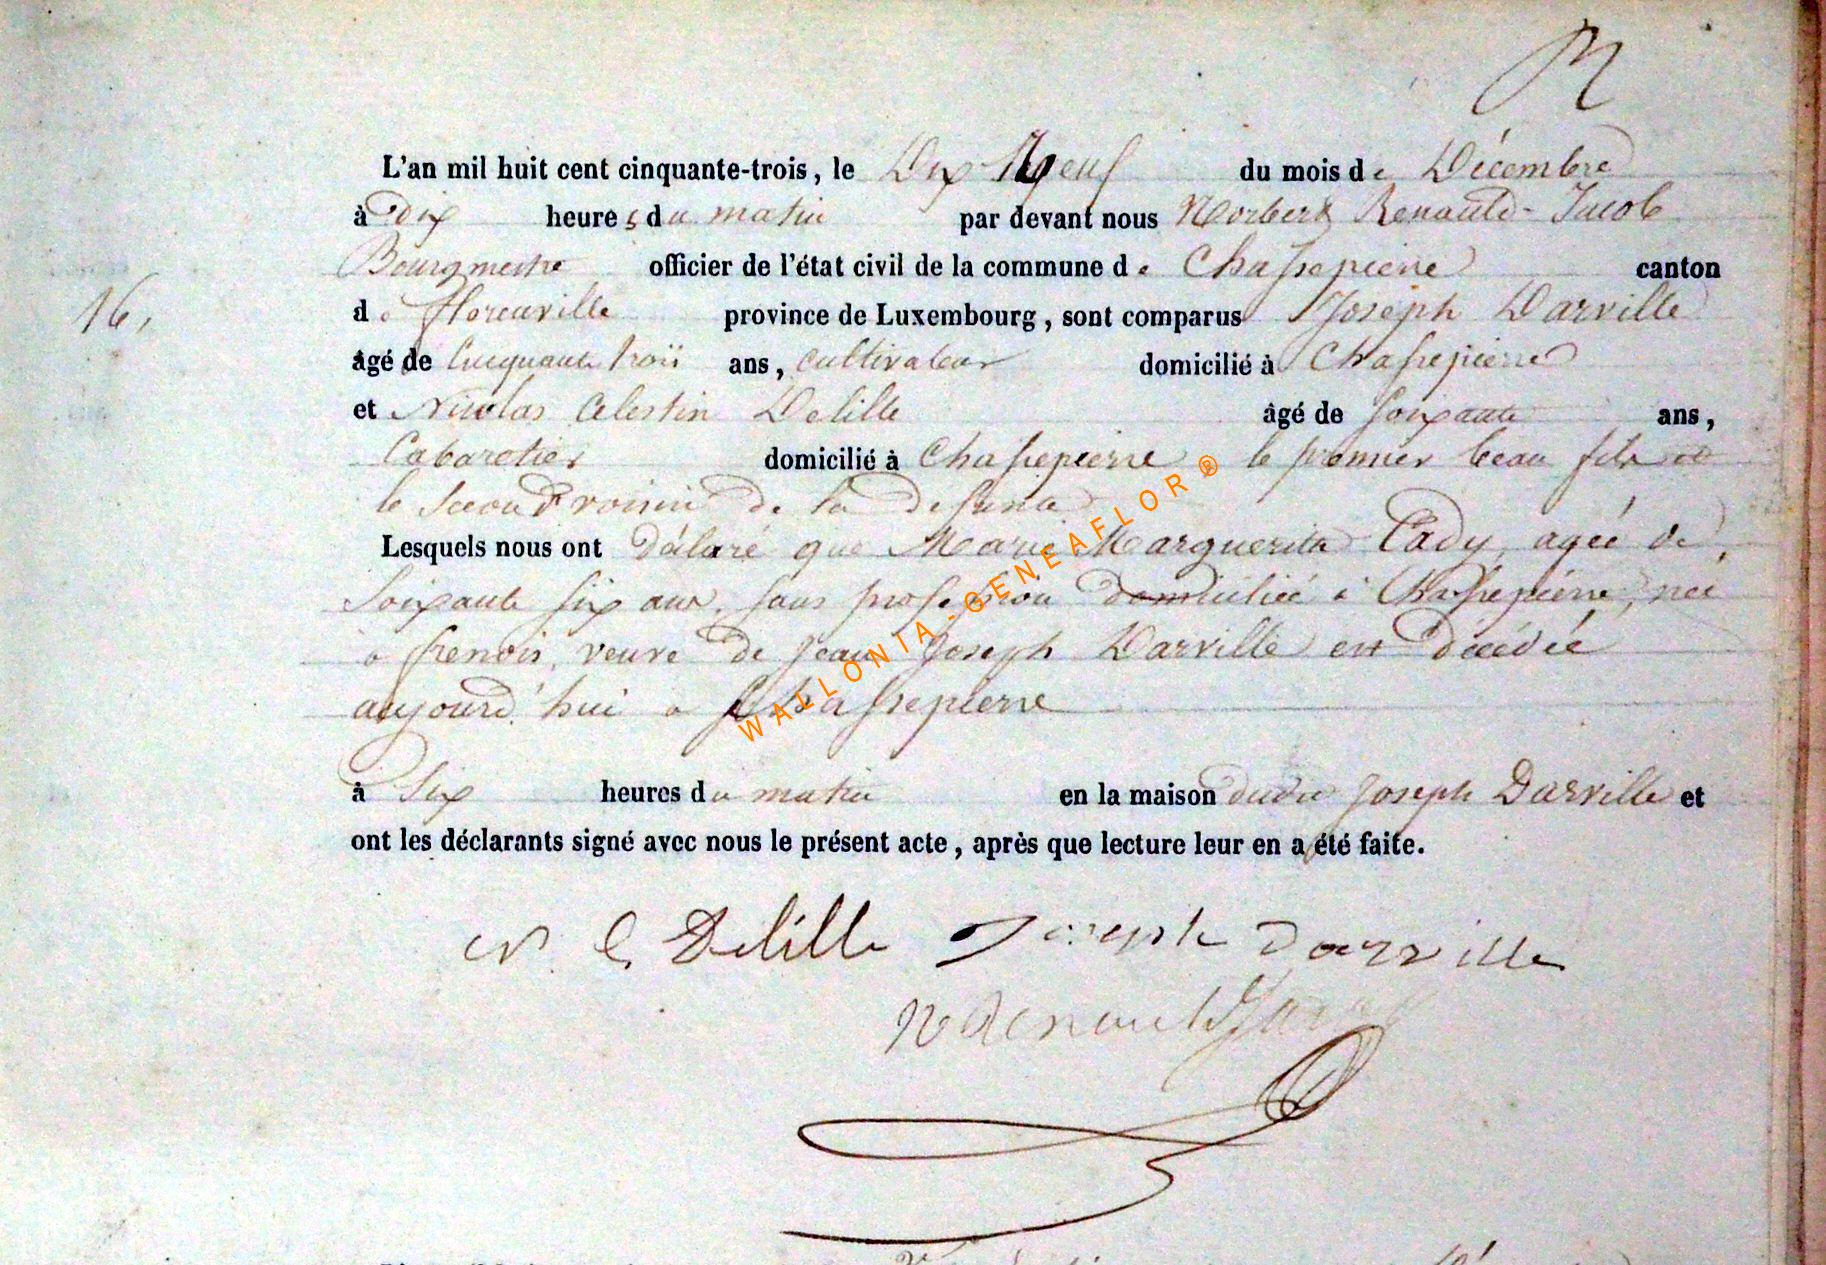 L'an mil huit cent cinquante-trois, le Dix Neuf du mois de Décembre
à dix heures du matin par devant nous Norbert Renauld-Jacob
Bourgmestre officier de l'état civil de la commune de Chassepierre canton
16, de florenville province de Luxembourg, sont comparus Joseph Darville
âgé de Cinquante trois ans, cultivateur domicilié à Chassepierre
et Nicolas Celestin Delille âgé de soixante ans,
Cabaretier domicilié à Chassepierre le premier beau fils et
le second voisin de la defunte
Lesquels nous ont déclaré que Marie Marguerite Cady, agée de
soixante six ans, sans profession domiciliée à Chassepierre, née
a frenois, veuve de Jean Joseph Darville est décédée
aujourd'hui a Chassepierre
à six heures du matin en la maison dudit Joseph Darville et
ont les déclarants signé avec nous le présent acte, après que lecture leur en a été faite.
N. C Delille Joseph Darville
N Renauld Jacob
WALLONIA-GENEAFLOR®